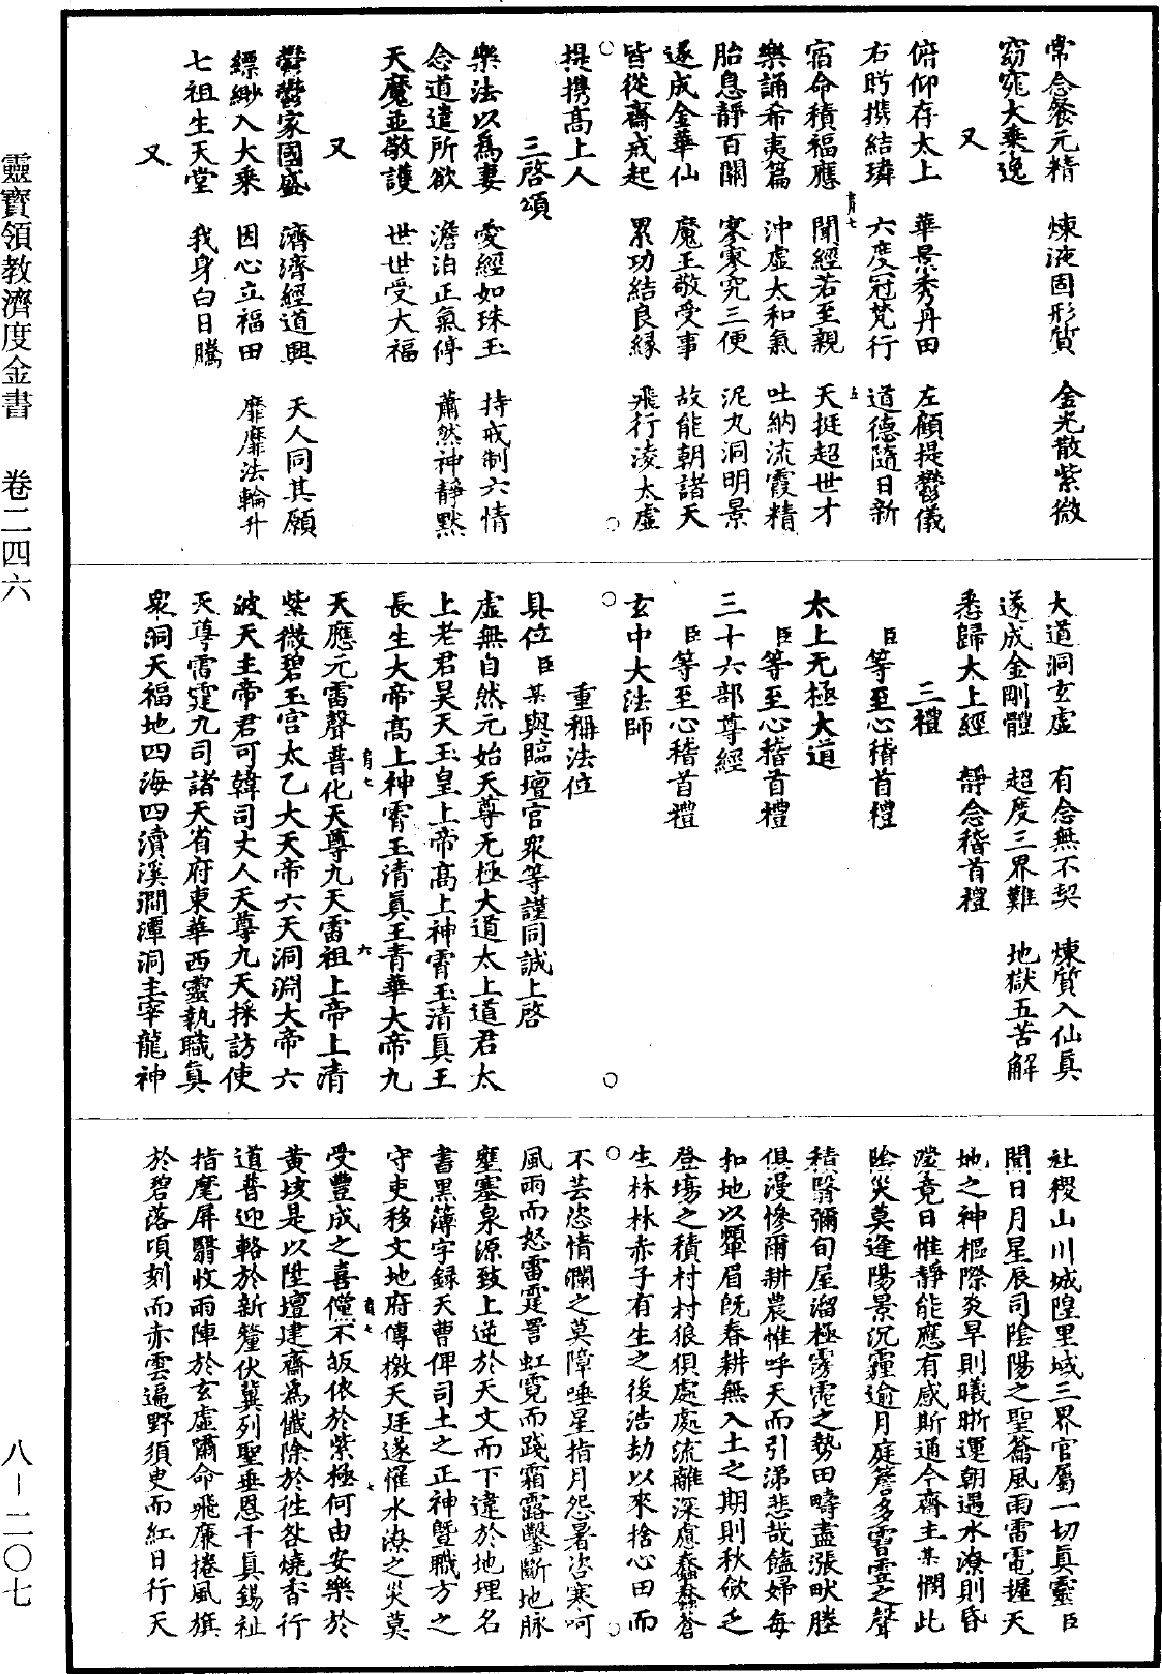 常念餐元精　煉液固形質　金光散紫微
窈窕大乘逸
又
俯仰存太上　華景秀丹田　左顧提鬱儀
右眄携結璘　六度冠梵行　道德隨日新
宿命積福應　聞經若至親　天挺超世才
樂誦希夷篇　沖虛太和氣　吐納流霞精
胎息靜百關　寥寥究三便　泥丸洞明景
遂成金華仙　魔王敬受事　故能朝諸天
皆從齋戒起　累功結良緣　飛行淩太虛
提携高上人
三啓頌
樂法以爲妻　愛經如珠玉　持戒制六情
念道遣所欲　澹泊正氣停　蕭然神靜默
天魔並敬護　世世受大福
又
鬱鬱家國盛　濟濟經道興　天人同其願
縹緲入大乘　因心立福田　靡靡法輪升
七祖生天堂　我身白日騰
又
大道洞玄虛　有念無不契　煉質入仙眞
遂成金剛體　超度三界難　地獄五苦解
悉歸太上經　靜念稽首禮
三禮
臣等至心稽首禮
太上无極大道
臣等至心稽首禮
三十六部尊經
臣等至心稽首禮
玄中大法師
重稱法位
具位臣某與臨壇官衆等謹同誠上啓
虛無自然元始天尊无極大道太上道君太
上老君昊天玉皇上帝高上神霄玉清眞王
長生大帝高上神霄玉清眞王青華大帝九
天應元雷聲普化天尊九天雷祖上帝上清
紫微碧玉宮太乙大天帝六天洞淵大帝六
波天主帝君可韓司丈人天尊九天採訪使
天尊雷霆九司諸天省府東華西靈執職眞
衆洞天福地四海四瀆溪澗潭洞主宰龍神
社稷山川城隍里域三界官屬一切眞靈臣
聞日月星辰司陰陽之聖蓋風雨雷電握天
地之神樞際炎旱則曦晰運朝遇水潦則昏
瀅竟日惟靜能應有感斯通今齋主某憫此
陰災莫逢陽景沉霾逾月庭簷多霤霪之聲
積翳彌旬屋溜極霶霈之勢田疇盡漲畎塍
俱漫慘爾耕農惟呼天而引涕悲哉饁婦每
扣地以顰眉旣春耕無入土之期則秋斂乏
登塲之積村村狼狽處處流離深慮蠢蠢蒼
生林林赤子有生之後浩劫以來捨心田而
不芸恣情瀾之莫障唾星指月怨暑咨寒呵
風雨而怒雷霆詈虹霓而踐霜露鑿斷地脉
壅塞泉源致上逆於天文而下違於地理名
書黑簿字録天曹俾司土之正神曁職方之
守吏移文地府傳檄天廷遂罹水潦之災莫
受豐成之喜儻不皈依於紫極何由安樂於
黃垓是以陞壇建齋爲懺除於徃咎燒香行
道普迎輅於新釐伏冀列聖垂恩千眞錫祉
指麾屏翳收雨陣於玄虛謫命飛廉捲風旗
於碧落頃刻而赤雲遍野須臾而紅日行天
靈寶領教濟度金書　卷二四六
八—二〇七